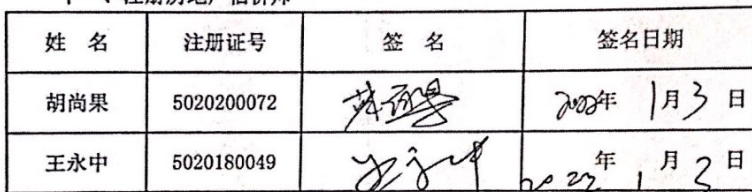 姓 名 注册证号 签 名 签名日期
胡尚果 5020200072 年 1月3日
王永中 5020180049 王永中 2023年1月2日